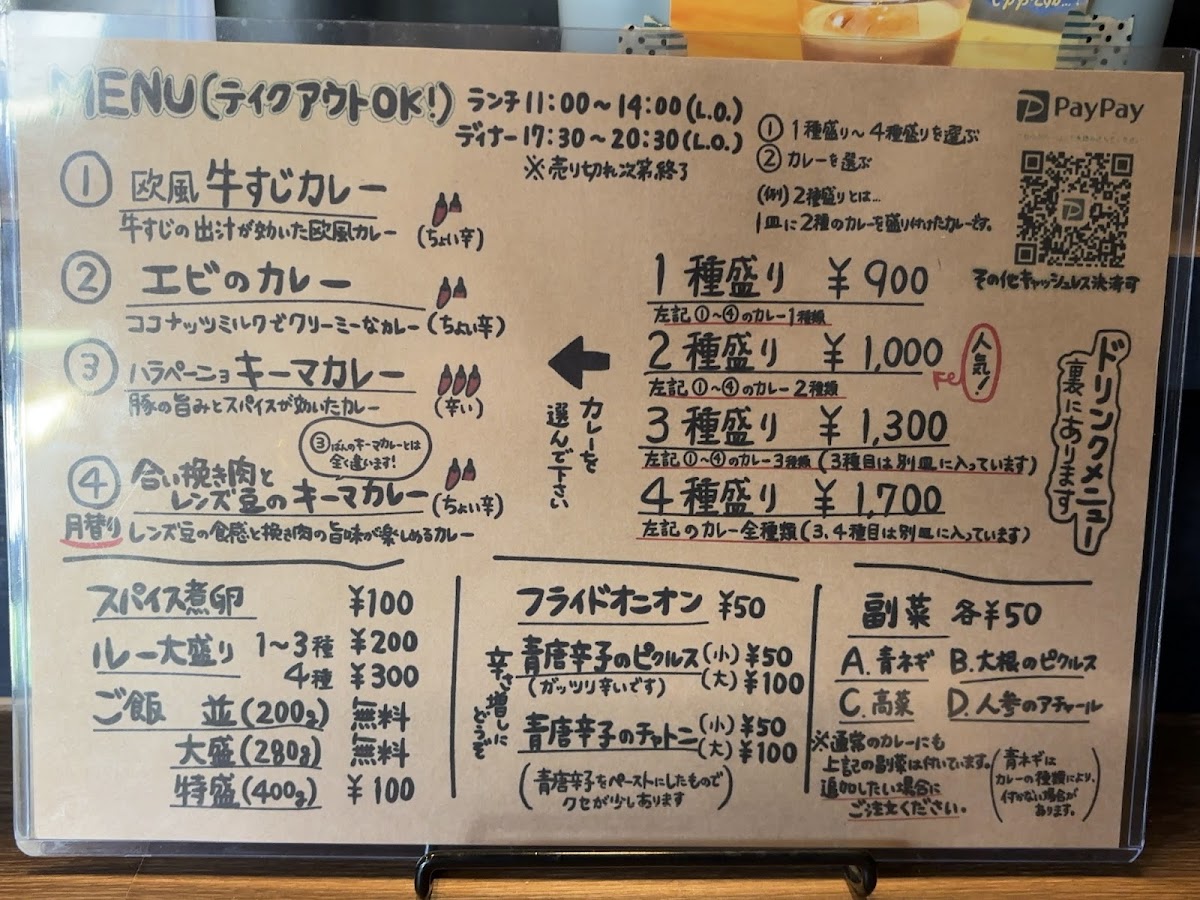 MENU(テイクアウトOK!)
ランチ 11:00～14:00 (L.O.)
ディナー 17:30～20:30 (L.O.)
※売り切れ次第終了
① 1種盛り～4種盛りを選ぶ
② カレーを選ぶ
(例) 2種盛りとは…
1皿に2種のカレーを盛り付けたカレーです。
PayPay
その他キャッシュレス決済可
① 欧風 牛すじカレー
牛すじの出汁が効いた欧風カレー
(ちょい辛)
② エビのカレー
ココナッツミルクでクリーミーなカレー
(ちょい辛)
③ ハラペーニョ キーマカレー
豚の旨みとスパイスが効いたカレー
(辛い)
③ばんのキーマカレーとは
全く違います!
④ 合い挽き肉と
レンズ豆のキーマカレー
(ちょい辛)
月替り
レンズ豆の食感と挽き肉の旨味が楽しめるカレー
カレーを
選んで下さい
1種盛り ¥900
左記①～④のカレー1種類
2種盛り ¥1,000
人気!
左記①～④のカレー2種類
3種盛り ¥1,300
左記①～④のカレー3種類 (3種目は別皿に入っています)
4種盛り ¥1,700
左記のカレー全種類 (3、4種目は別皿に入っています)
ドリンクメニュー
裏にあります
スパイス煮卵 ¥100
ルー大盛り 1～3種 ¥200
4種 ¥300
ご飯 並(200g) 無料
大盛(280g) 無料
特盛(400g) ¥100
フライドオニオン ¥50
辛さ増しに
どうぞ
青唐辛子のピクルス (小) ¥50
(ガッツリ辛いです) (大) ¥100
青唐辛子のチャトニ (小) ¥50
(大) ¥100
(青唐辛子をペーストにしたもので
クセが少しあります)
副菜 各¥50
A. 青ネギ B. 大根のピクルス
C. 高菜 D. 人参のアチャール
※通常のカレーにも
上記の副菜は付いています。
追加したい場合に
ご注文ください。
(青ネギは
カレーの種類により、
付かない場合が
あります。)